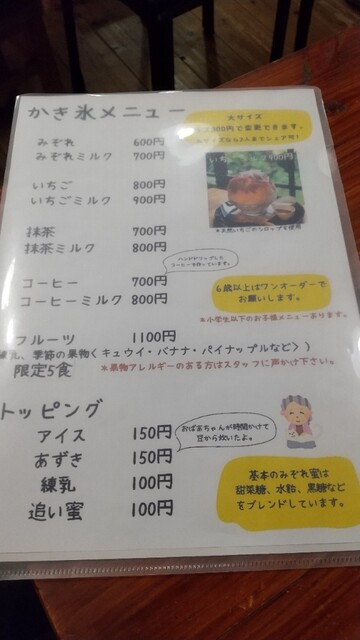 かき氷メニュー
大サイズ
300円で変更できます。
みぞれ 600円
みぞれミルク 700円
いちご 800円
いちごミルク 900円
いちご 900円
*天然いちごのシロップを使用
抹茶 700円
抹茶ミルク 800円
ハンドドリップした
コーヒーを作っています。
コーヒー 700円
コーヒーミルク 800円
6歳以上はワンオーダーで
お願いします。
*小学生以下のお子様メニューあります。
フルーツ 1100円
練乳、季節の果物くキュウイ・バナナ・パイナップルなど>)
限定5食 *果物アレルギーのある方はスタッフに声かけ下さい。
トッピング
アイス 150円
あずき 150円
練乳 100円
追い蜜 100円
おばあちゃんが時間かけて
豆から炊いたよ。
基本のみぞれ蜜は
甜菜糖、水飴、黒糖など
をブレンドしています。